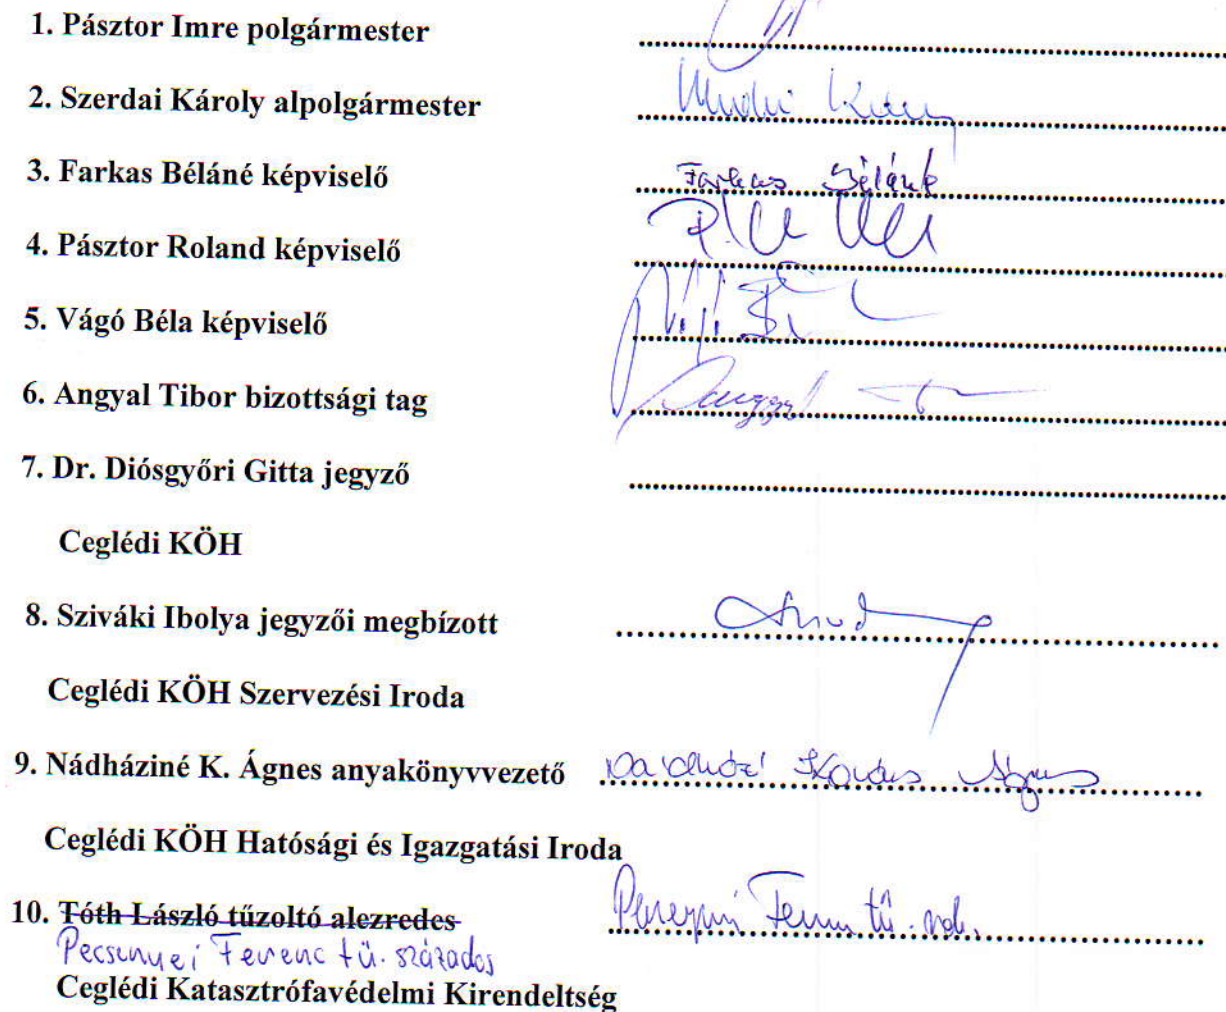 1. Pásztor Imre polgármester
2. Szerdai Károly alpolgármester
3. Farkas Béláné képviselő Farkas Béláné
4. Pásztor Roland képviselő
5. Vágó Béla képviselő
6. Angyal Tibor bizottsági tag
7. Dr. Diósgyőri Gitta jegyző
Ceglédi KÖH
8. Sziváki Ibolya jegyzői megbízott
Ceglédi KÖH Szervezési Iroda
9. Nádháziné K. Ágnes anyakönyvvezető Kovács Ágnes
Ceglédi KÖH Hatósági és Igazgatási Iroda
10. Tóth László tűzoltó alezredes
Pecsenyei Ferenc tű. százados
Ceglédi Katasztrófavédelmi Kirendeltség